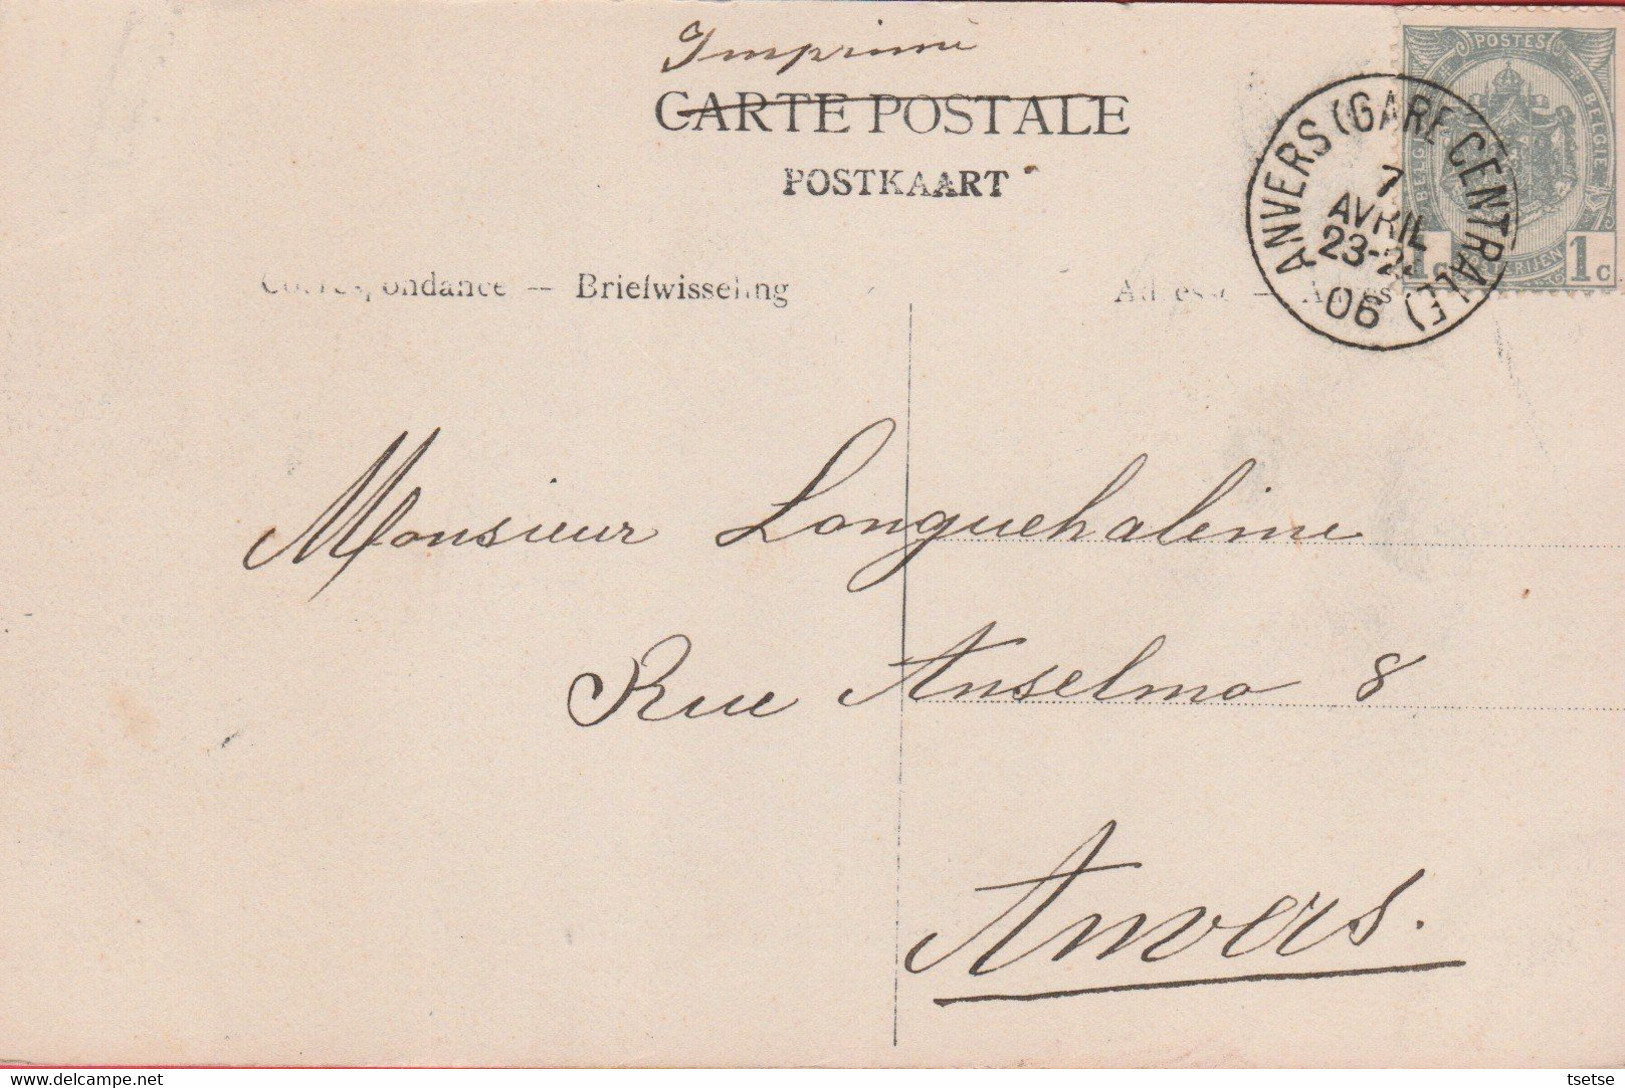 Imprimé
CARTE POSTALE
POSTKAART
Correspondance — Briefwisseling
Adresse — Adres
POSTES
BELGIQUE
BELGIË
POSTERIJEN
1c 1c
ANVERS (GARE CENTRALE)
7
AVRIL
23-24
06
Monsieur Longuehaleine
Rue Anselmo 8
Anvers.
www.delcampe.net
tsetse